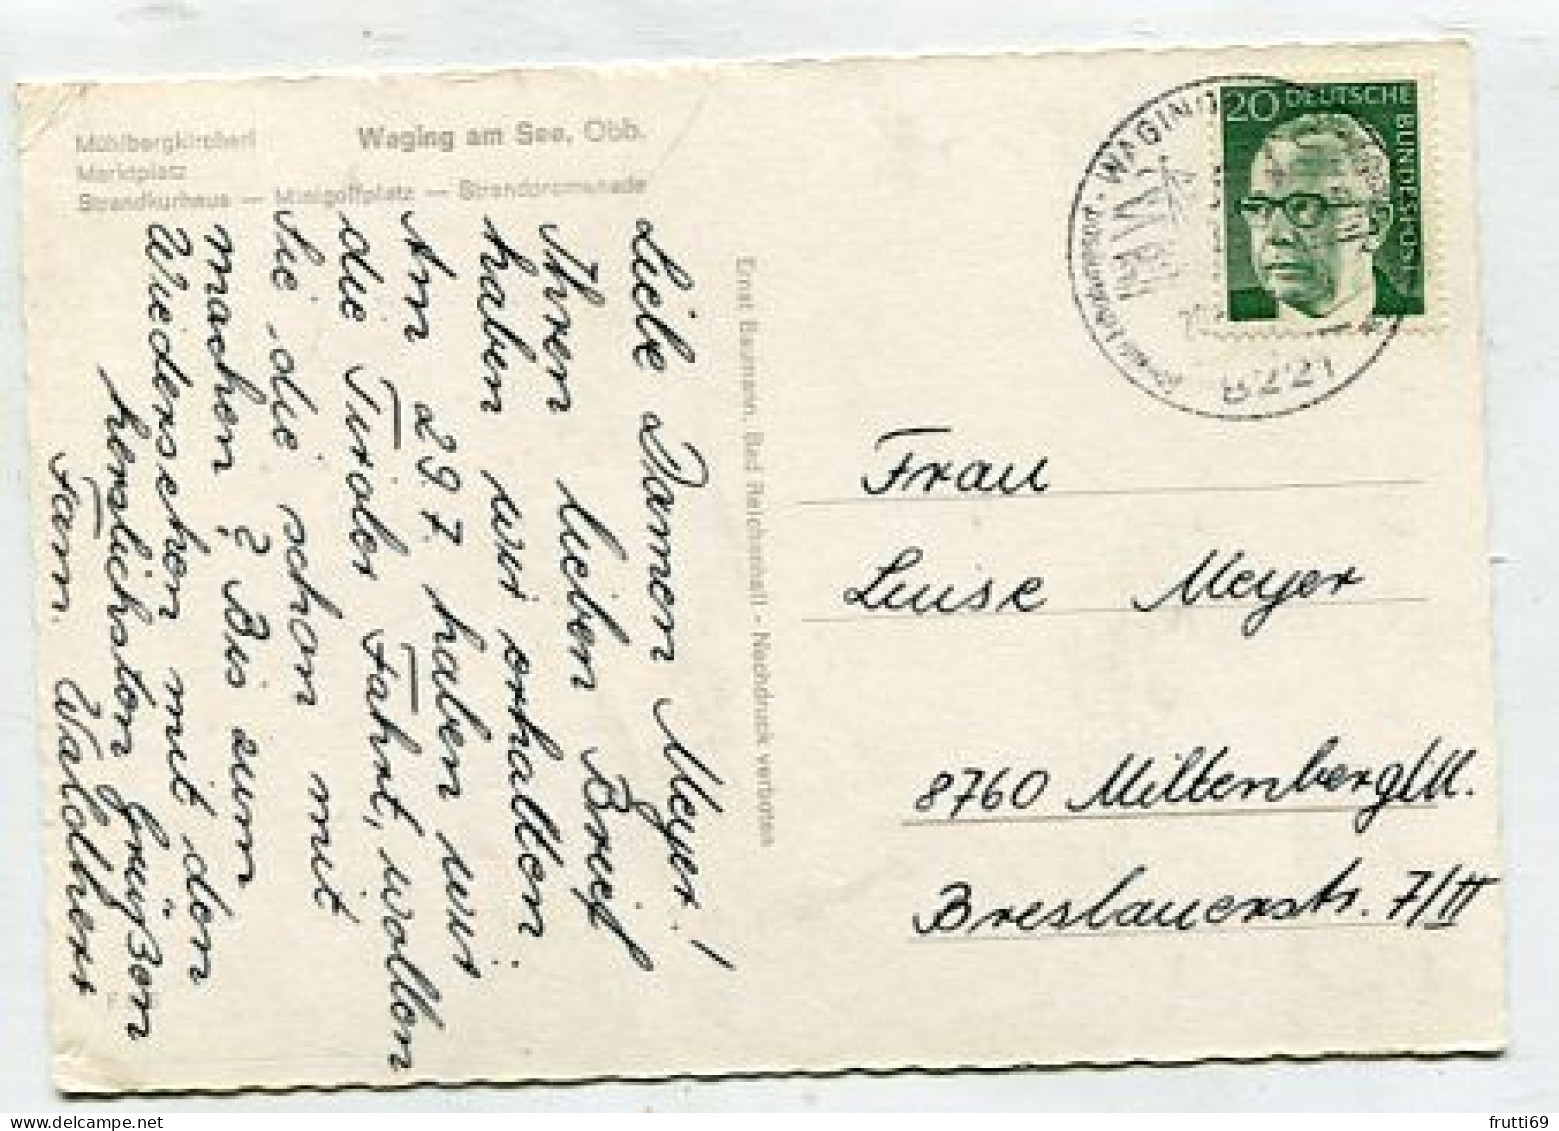 Mühlbergkircherl
Waging am See, Obb.
Marktplatz
Strandkurhaus — Minigolfplatz — Strandpromenade
Liebe Damen Meyer!
Ihren lieben Brief
haben wir erhalten
Am 29 7. haben wir
die Tiroler Fahrt, wollen
Sie die schon mit
machen? Bis zum
Wiedersehen mit den
herzlichsten Grüßen
Fam. Waldherr
Ernst Baumann, Bad Reichenhall - Nachdruck verboten
WAGING
8221
20 DEUTSCHE
BUNDESPOST
Frau
Luise Meyer
8760 Miltenberg/M.
Breslauerstr. 7/III
frutti69